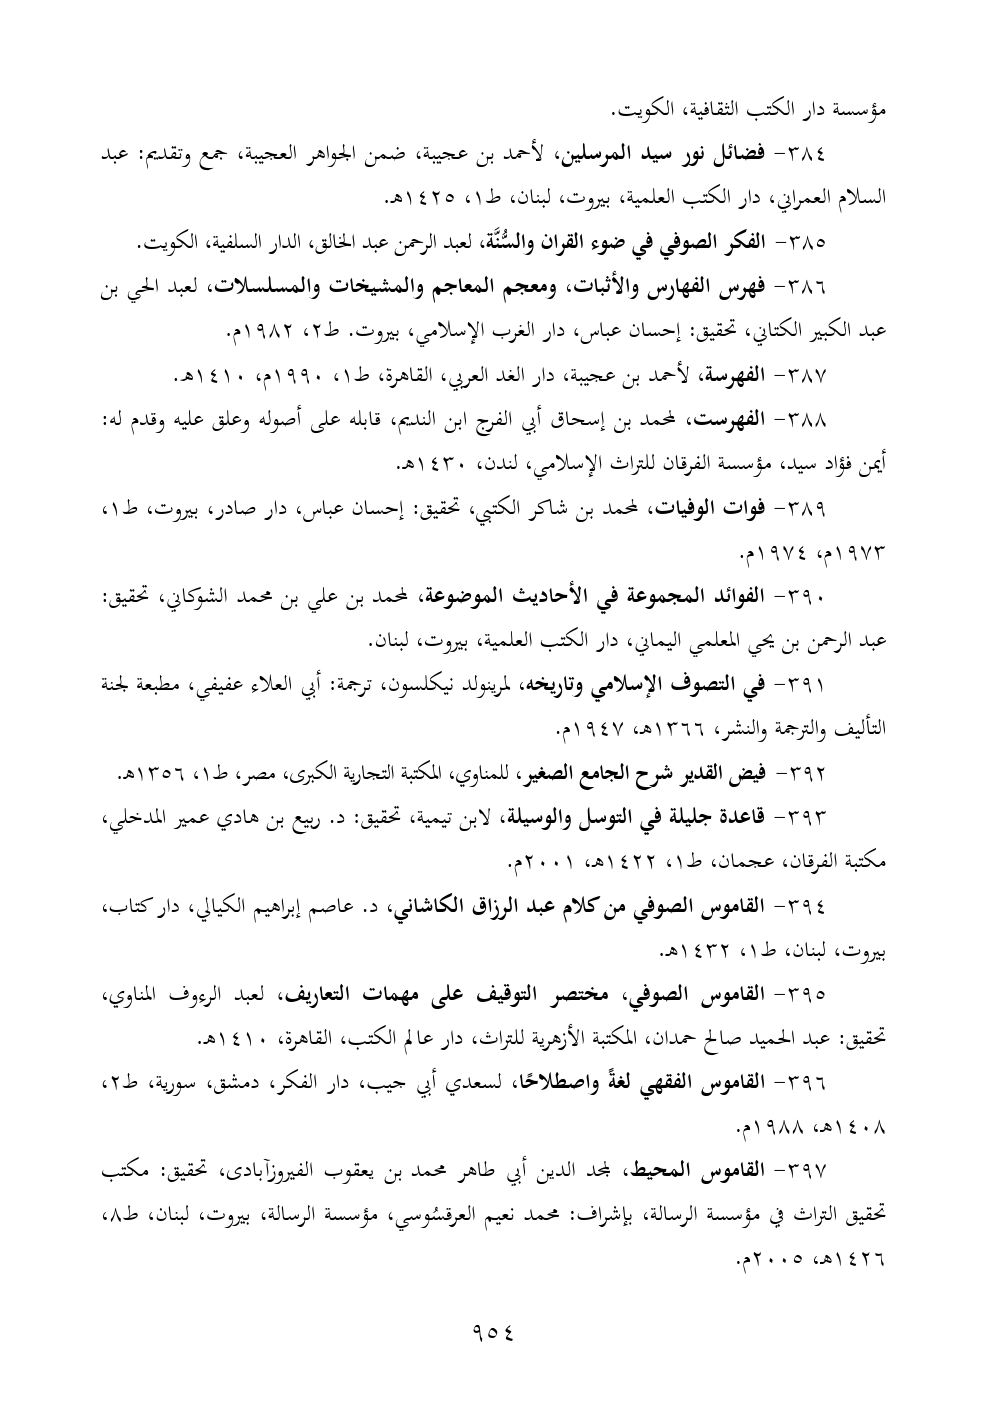 مؤسسة دار الكتب الثقافية، الكويت.
٣٨٤- فضائل نور سيد المرسلين، لأحمد بن عجيبة، ضمن الجواهر العجيبة، جمع وتقديم: عبد
السلام العمراني، دار الكتب العلمية، بيروت، لبنان، ط١، ١٤٢٥هـ.
٣٨٥- الفكر الصوفي في ضوء القران والسُّنَّة، لعبد الرحمن عبد الخالق، الدار السلفية، الكويت.
٣٨٦- فهرس الفهارس والأثبات، ومعجم المعاجم والمشيخات والمسلسلات، لعبد الحي بن
عبد الكبير الكتاني، تحقيق: إحسان عباس، دار الغرب الإسلامي، بيروت. ط٢، ١٩٨٢م.
٣٨٧- الفهرسة، لأحمد بن عجيبة، دار الغد العربي، القاهرة، ط١، ١٩٩٠م، ١٤١٠هـ.
٣٨٨- الفهرست، لمحمد بن إسحاق أبي الفرج ابن النديم، قابله على أصوله وعلق عليه وقدم له:
أيمن فؤاد سيد، مؤسسة الفرقان للتراث الإسلامي، لندن، ١٤٣٠هـ.
٣٨٩- فوات الوفيات، لمحمد بن شاكر الكتبي، تحقيق: إحسان عباس، دار صادر، بيروت، ط١،
١٩٧٣م، ١٩٧٤م.
٣٩٠- الفوائد المجموعة في الأحاديث الموضوعة، لمحمد بن علي بن محمد الشوكاني، تحقيق:
عبد الرحمن بن يحي المعلمي اليماني، دار الكتب العلمية، بيروت، لبنان.
٣٩١- في التصوف الإسلامي وتاريخه، لمرينولد نيكلسون، ترجمة: أبي العلاء عفيفي، مطبعة لجنة
التأليف والترجمة والنشر، ١٣٦٦هـ، ١٩٤٧م.
٣٩٢- فيض القدير شرح الجامع الصغير، للمناوي، المكتبة التجارية الكبرى، مصر، ط١، ١٣٥٦هـ.
٣٩٣- قاعدة جليلة في التوسل والوسيلة، لابن تيمية، تحقيق: د. ربيع بن هادي عمير المدخلي،
مكتبة الفرقان، عجمان، ط١، ١٤٢٢هـ، ٢٠٠١م.
٣٩٤- القاموس الصوفي من كلام عبد الرزاق الكاشاني، د. عاصم إبراهيم الكيالي، دار كتاب،
بيروت، لبنان، ط١، ١٤٣٢هـ.
٣٩٥- القاموس الصوفي، مختصر التوقيف على مهمات التعاريف، لعبد الرءوف المناوي،
تحقيق: عبد الحميد صالح حمدان، المكتبة الأزهرية للتراث، دار عالم الكتب، القاهرة، ١٤١٠هـ.
٣٩٦- القاموس الفقهي لغةً واصطلاحًا، لسعدي أبي جيب، دار الفكر، دمشق، سورية، ط٢،
١٤٠٨هـ، ١٩٨٨م.
٣٩٧- القاموس المحيط، لمجد الدين أبي طاهر محمد بن يعقوب الفيروزآبادى، تحقيق: مكتب
تحقيق التراث في مؤسسة الرسالة، بإشراف: محمد نعيم العرقسُوسي، مؤسسة الرسالة، بيروت، لبنان، ط٨،
١٤٢٦هـ، ٢٠٠٥م.
٩٥٤